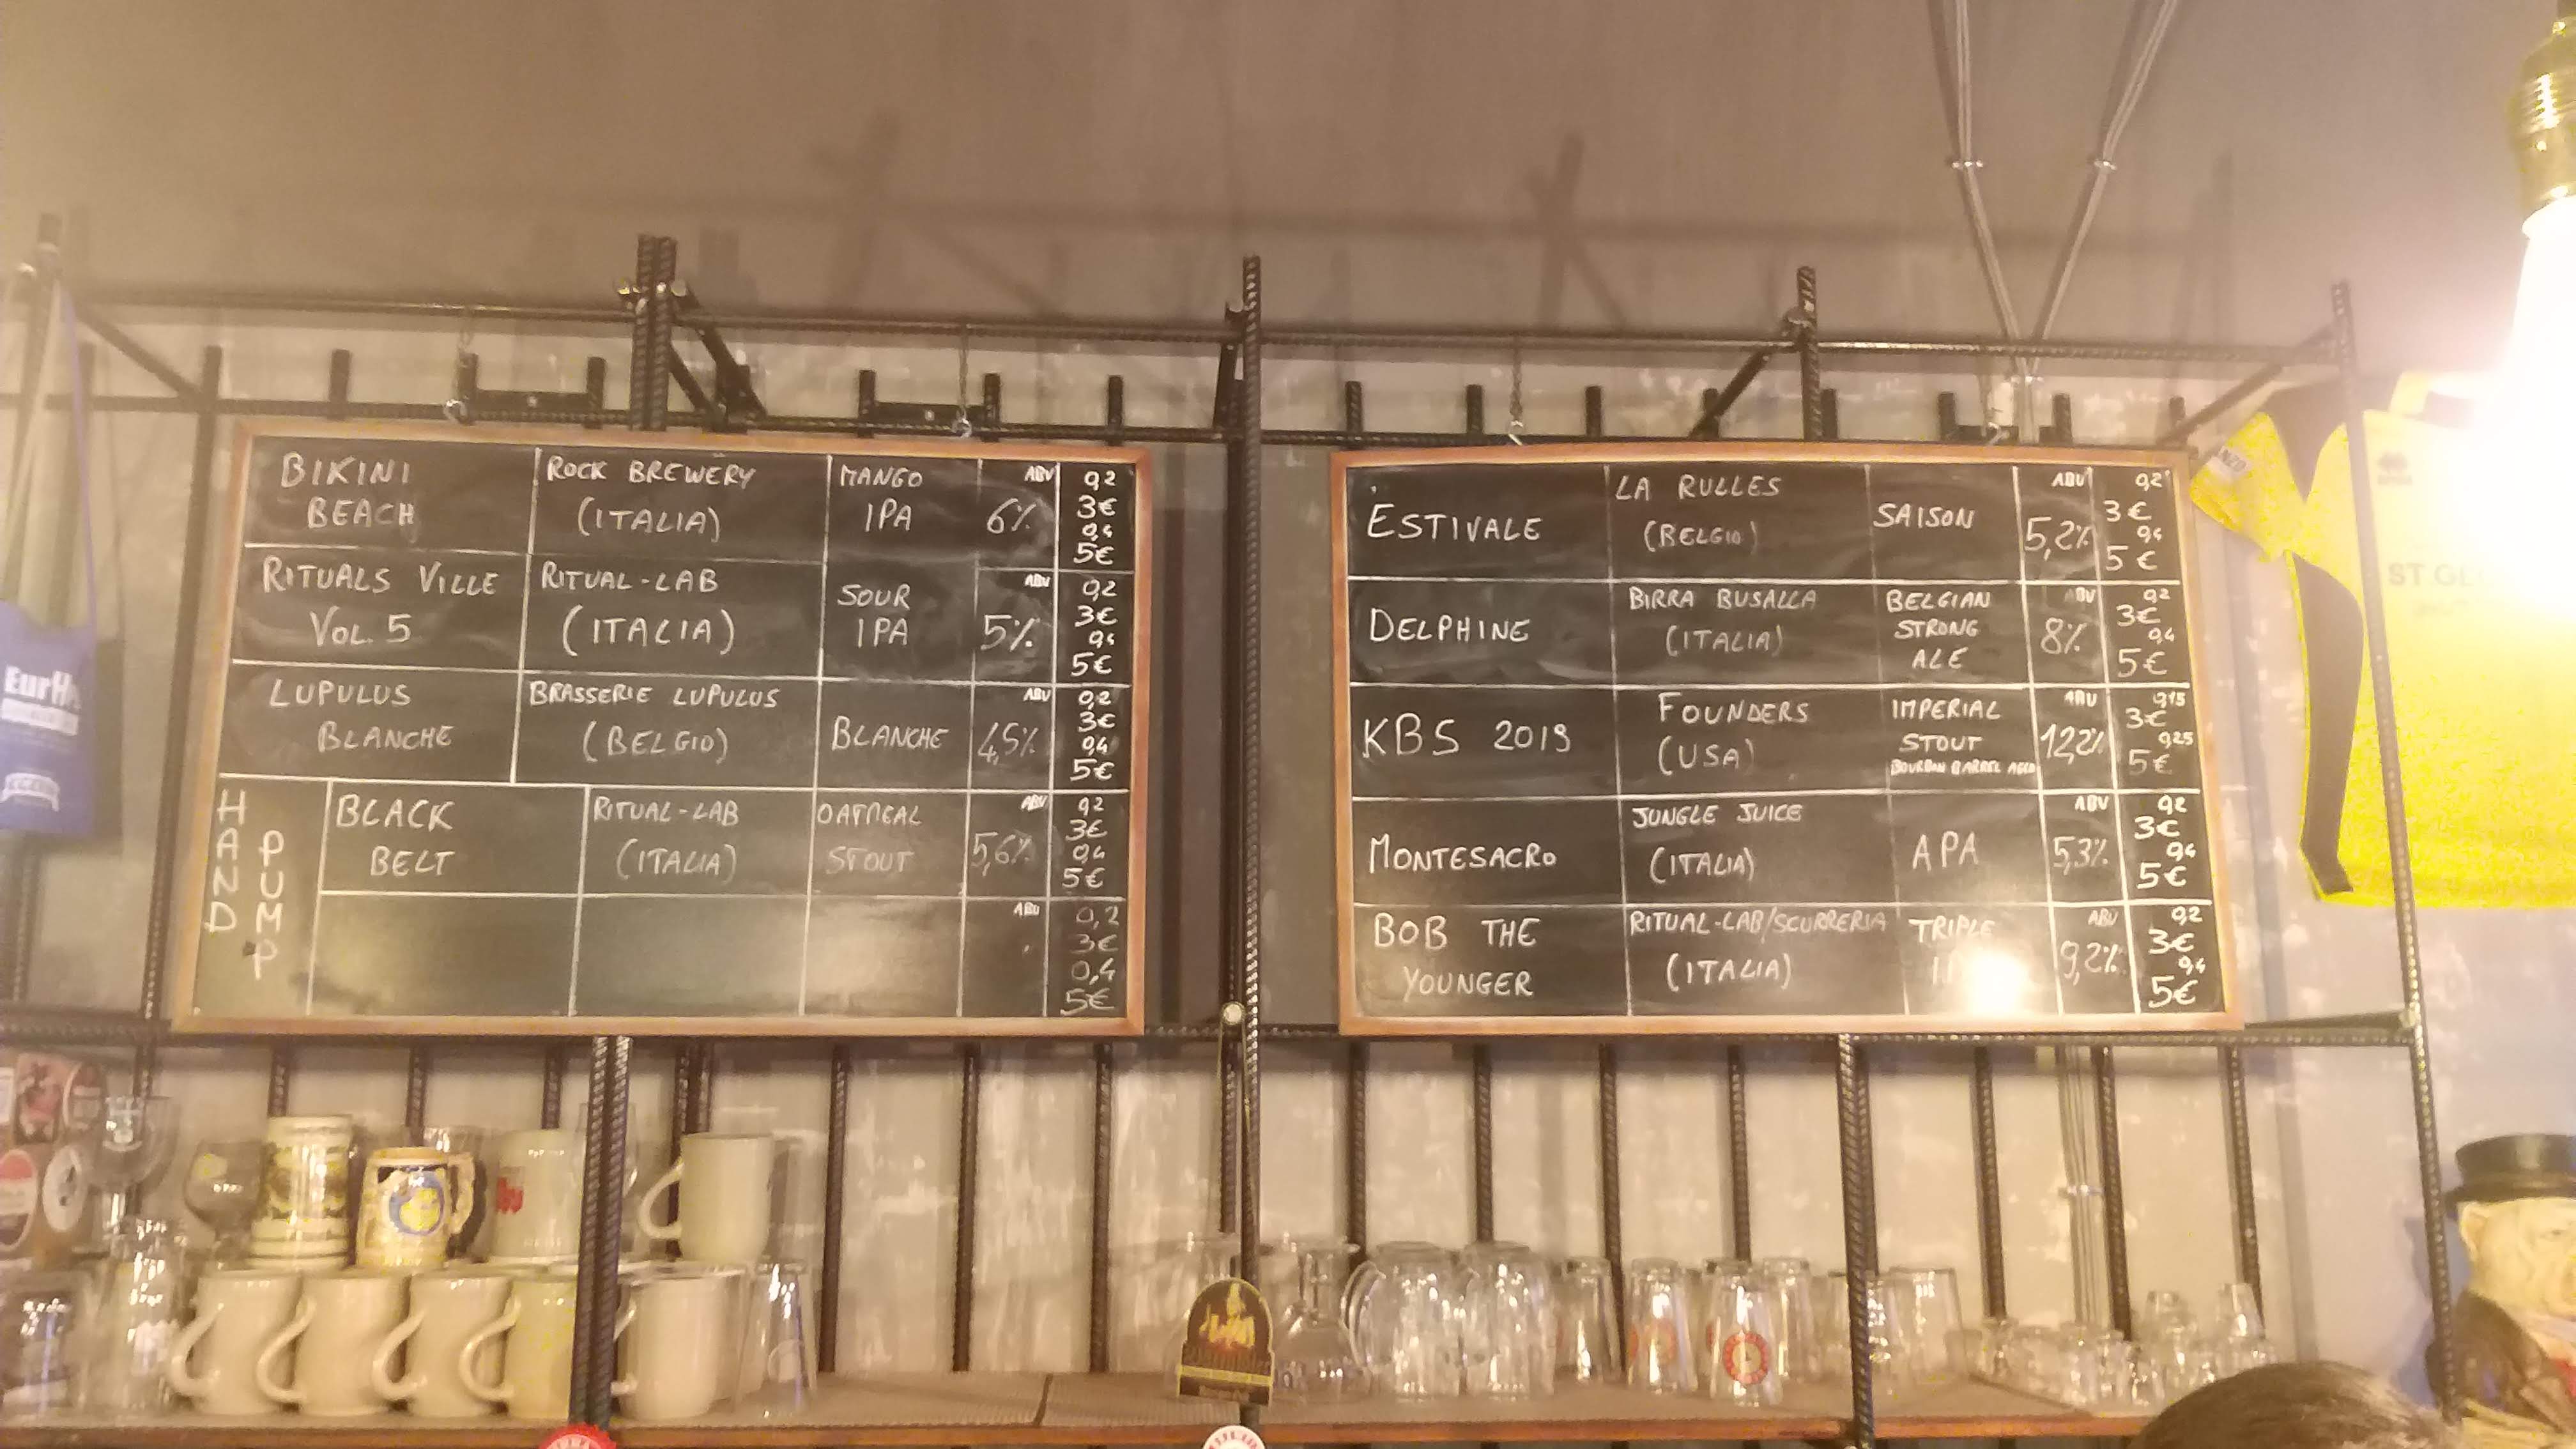 BIKINI
BEACH
ROCK BREWERY
(ITALIA)
MANGO
IPA
ABV
6%
0,2
3€
0,4
5€
RITUALS VILLE
VOL. 5
RITUAL-LAB
(ITALIA)
SOUR
IPA
ABV
5%
0,2
3€
0,4
5€
LUPULUS
BLANCHE
BRASSERIE LUPULUS
(BELGIO)
BLANCHE
ABV
4,5%
0,2
3€
0,4
5€
HAND
PUMP
BLACK
BELT
RITUAL-LAB
(ITALIA)
OATMEAL
STOUT
ABV
5,6%
0,2
3€
0,4
5€
ABV
0,2
3€
0,4
5€
ESTIVALE
LA RULLES
(BELGIO)
SAISON
ABV
5,2%
0,2
3€
0,4
5€
DELPHINE
BIRRA BUSALLA
(ITALIA)
BELGIAN
STRONG
ALE
ABV
8%
0,2
3€
0,4
5€
KBS 2019
FOUNDERS
(USA)
IMPERIAL
STOUT
BOURBON BARREL AGED
ABV
12,2%
0,15
3€
0,25
5€
MONTESACRO
JUNGLE JUICE
(ITALIA)
APA
ABV
5,3%
0,2
3€
0,4
5€
BOB THE
YOUNGER
RITUAL-LAB/SCURRERIA
(ITALIA)
TRIPLE
ABV
9,2%
0,2
3€
0,4
5€